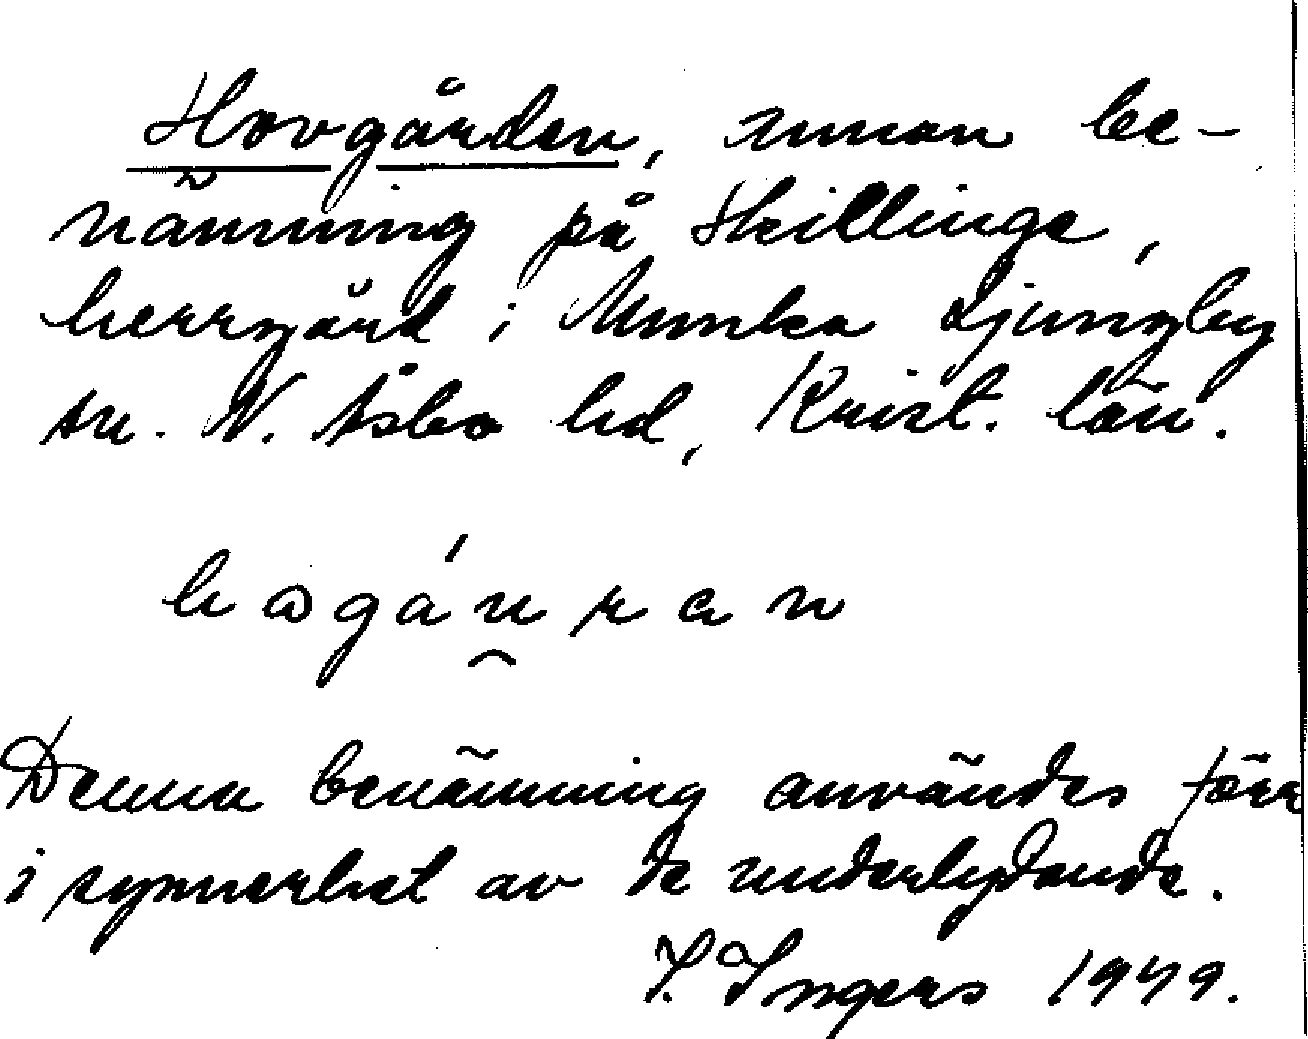 Hovgården, annan be-
nämning på Skillinge,
herrgård i Munka Ljungby
sn. N. Åsbo hd, Krist. län.
hogáu̯ran
Denna benämning användes förr
i synnerhet av de underlydande.
I. Ingers 1949.